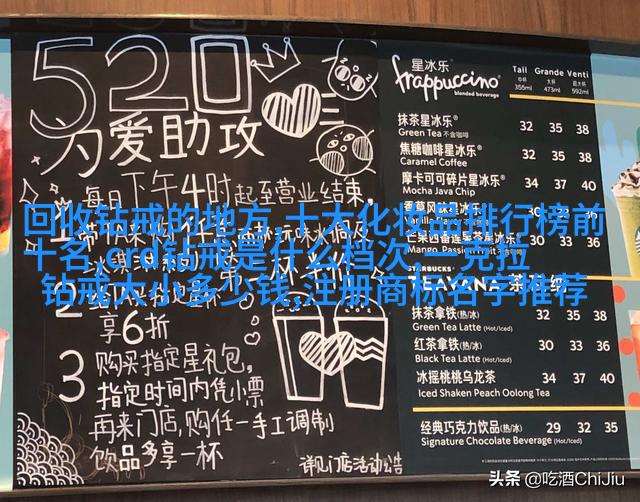 520
为爱助攻
每日下午4时起至营业结束,
享6折
3 购买指定星礼包,
指定时间内凭小票
再来门店,购任一手工调制
饮品多享一杯
详见门店活动公告
星冰乐®
frappuccino®
blended beverage
Tall Grande Venti
中杯 大杯 超大杯
355ml 473ml 592ml
抹茶星冰乐® 32 35 38
Green Tea 不含咖啡
焦糖咖啡星冰乐® 32 35 38
Caramel Coffee
摩卡可可碎片星冰乐® 34 37 40
Mocha Java Chip
香草风味星冰乐®
芒果西番莲果茶星冰乐® 30 33 36
Mango Passion Fruit 不含咖啡
STARBUCKS
TEAVANA
抹茶拿铁(热/冰) 32 35 38
Green Tea Latte (Hot/Iced)
红茶拿铁(热/冰) 30 33 36
Black Tea Latte (Hot/Iced)
冰摇桃桃乌龙茶 34 37 40
Iced Shaken Peach Oolong Tea
经典巧克力饮品(热/冰) 29 32 35
Signature Chocolate Beverage (Hot/Iced)
回收钻戒的地方,十大化妆品排行榜前
十名,crd钻戒是什么档次,一克拉
钻戒大小多少钱,注册商标名字推荐
头条 @吃酒ChiJiu